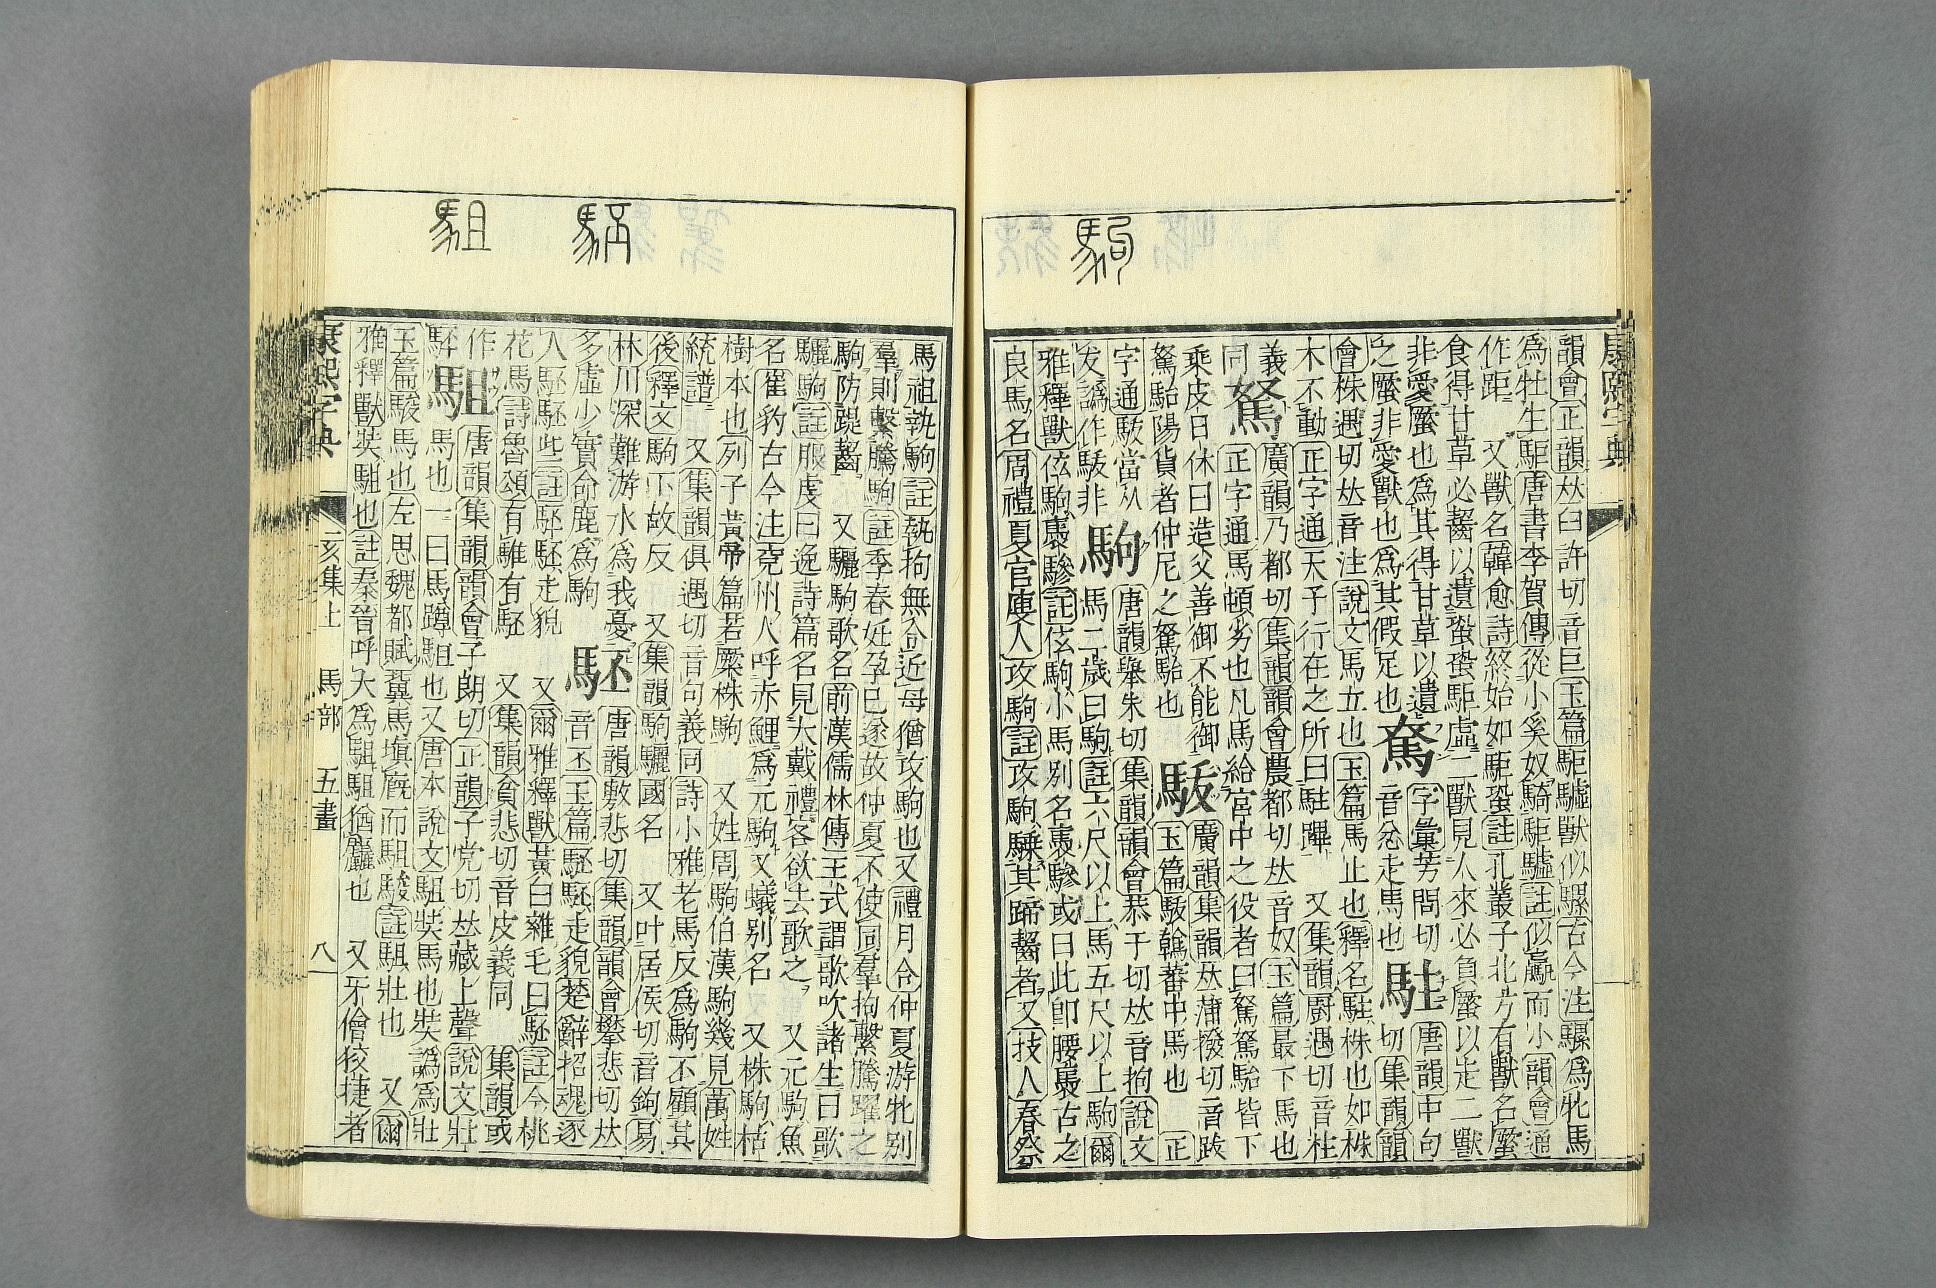 駒
韻會正韻𠀤臼許切音巨玉篇駏驉獸似騾古今注騾爲牝馬
爲牡生駏唐書李賀傳從小奚奴騎駏驉註似驘而小韻會通
作距 又獸名韓愈詩終始如駏蛩註孔叢子北方有獸名蟨
食得甘草必齧以遺蛩蛩駏虛二獸見人來必負蟨以走二獸
非愛蟨也爲其得甘草以遺
之蟨非愛獸也爲其假足也
駑
字彙芳問切
音忿走馬也
駐
唐韻中句
切集韻韻
會株遇切𠀤音注說文馬立也玉篇馬止也釋名駐株也如株
木不動正字通天子行在之所曰駐蹕 又集韻廚遇切音柱
義同
駑
廣韻乃都切集韻韻會農都切𠀤音奴玉篇最下馬也
正字通馬頓劣也凡馬給宮中之役者曰駑駑駘皆下
乘皮日休曰造父善御不能御
駑駘陽貨者仲尼之駑駘也
駊
廣韻集韻𠀤蒲撥切音跋
玉篇駊𩧢蕃中馬也 正
字通駊當从
犮譌作駊非
駒
唐韻舉朱切集韻韻會恭于切𠀤音拘說文
馬二歲曰駒註六尺以上馬五尺以上駒爾
雅釋獸㢺駒褭驂註㢺駒小馬別名褭驂或曰此卽腰褭古之
良馬名周禮夏官廋人攻駒註攻駒騬其蹄齧者又技人春祭
駔 𩢕
馬祖執駒註執拘無令近母猶攻駒也又禮月令仲夏游牝別
羣則縶騰駒註季春妊孕已遂故仲夏不使同羣拘縶騰躍之
駒防踶齧 又驪駒歌名前漢儒林傳王式謂歌吹諸生曰歌
驪駒註服虔曰逸詩篇名見大戴禮客欲去歌之 又元駒魚
名崔豹古今注兗州人呼赤鯉爲元駒又蟻別名 又株駒枯
樹本也列子黃帝篇若厥株駒 又姓周駒伯漢駒幾見萬姓
統譜 又集韻俱遇切音句義同詩小雅老馬反爲駒不顧其
後釋文駒下故反 又集韻駒驪國名 又叶居侯切音鉤易
林川深難游水爲我憂
多虛少實命鹿爲駒
駓
唐韻敷悲切集韻韻會攀悲切𠀤
音丕玉篇駓駓走貌楚辭招魂逐
人駓駓些註駓駓走貌 又爾雅釋獸黃白雜毛曰駓註今桃
花馬詩魯頌有騅有駓 又集韻貧悲切音皮義同 集韻或
作駔
駔
唐韻集韻韻會子朗切正韻子党切𠀤藏上聲說文壯
馬也一曰馬蹲駔也又唐本說文駔奘馬也奘譌爲壯
玉篇駿馬也左思魏都賦冀馬塡廐而駔駿註駔壯也 又爾
雅釋獸奘駔也註秦晉呼大爲駔駔猶麤也 又牙儈狡捷者
康熙字典 亥集上 馬部 五畫 八